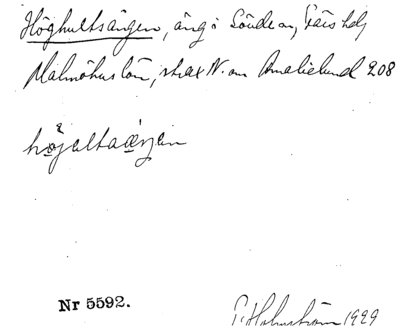 Höghultsängen, äng i Sövde sn, Färs hd,
Malmöhus län, strax N. om Amalielund 208
Nr 5592.
1929